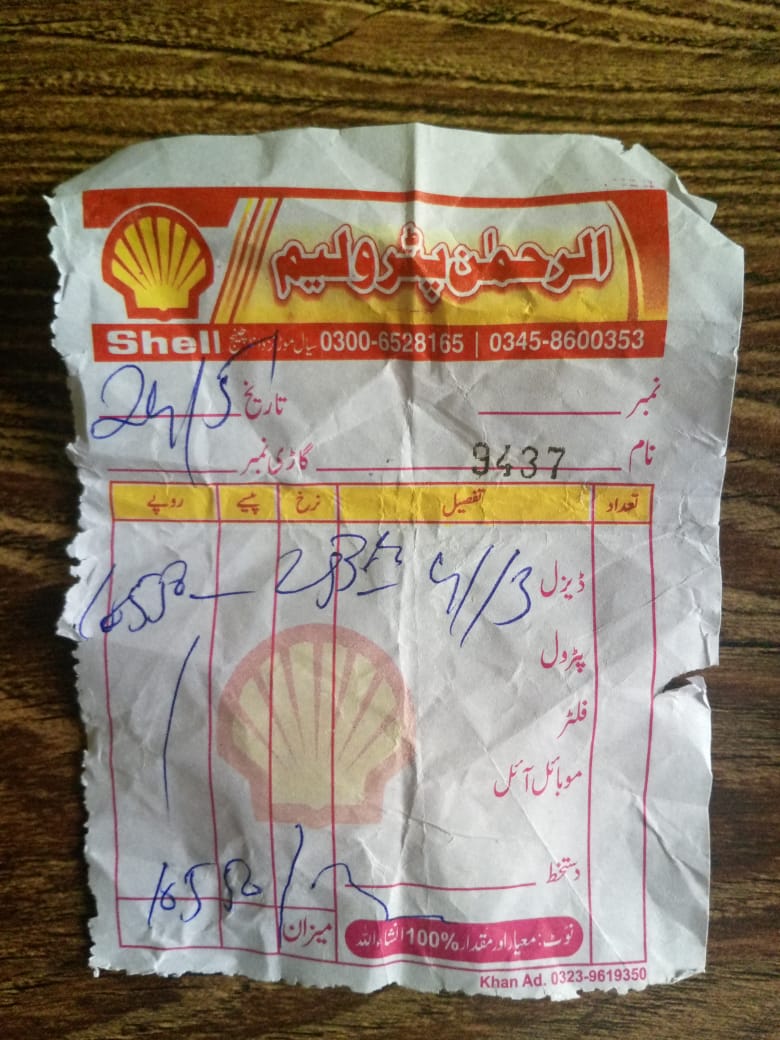 الرحمٰن پٹرولیم
Shell سیال موڑ 0300-6528165 | 0345-8600353
نمبر تاریخ 24/5
نام 9437 گاڑی نمبر
تعداد تفصیل نرخ پیسے روپے
ڈیزل
پٹرول
فلٹر
موبائل آئل
دستخط
میزان
نوٹ: معیار اور مقدار 100% انشاءاللہ
Khan Ad. 0323-9619350